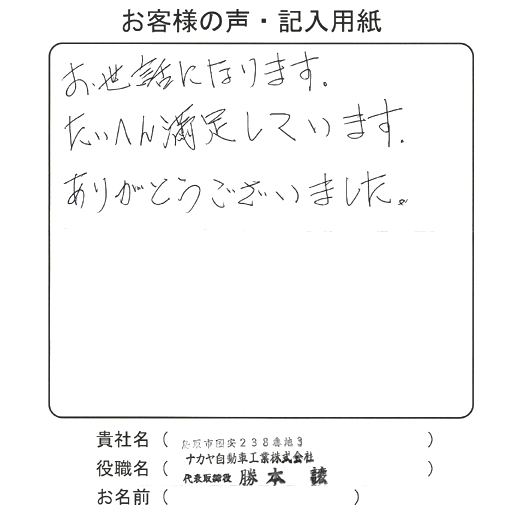 お客様の声・記入用紙
お世話になります。
たいへん満足しています.
ありがとうございました。
貴社名(
市田安238番地3
)
役職名(
ナカヤ自動車工業株式会社
)
代表取締役 勝本
お名前(
)